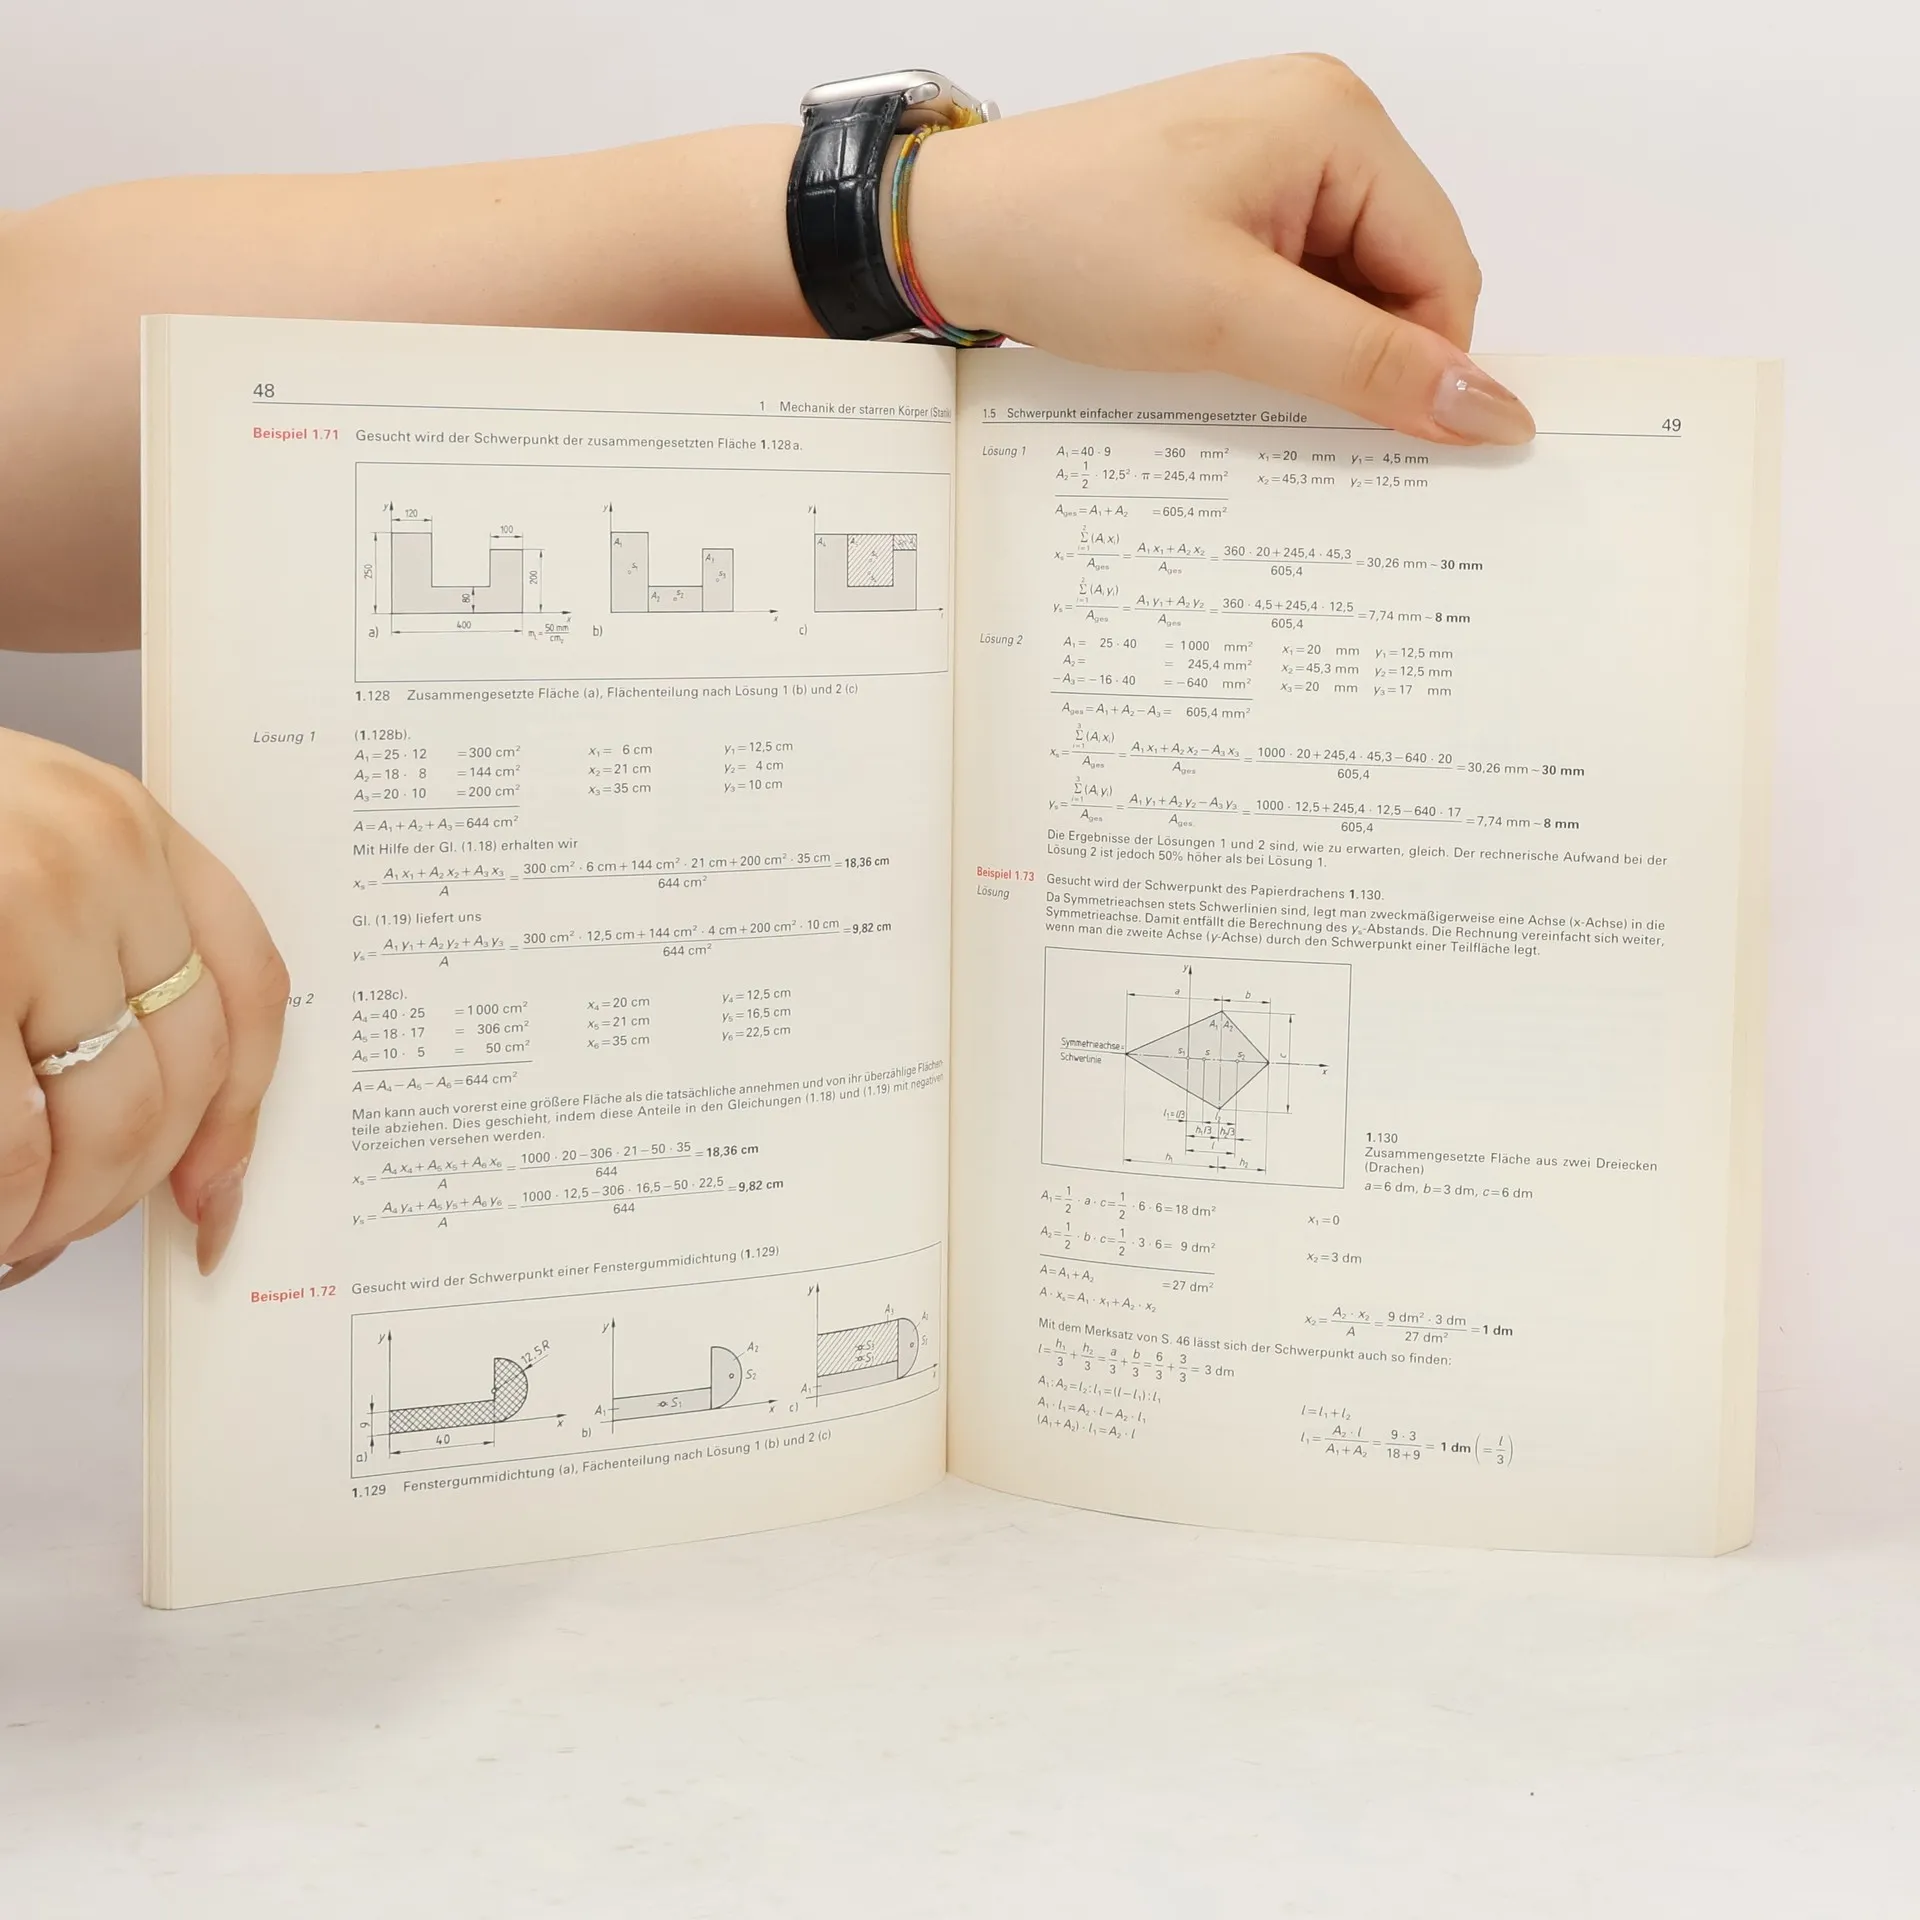 48
1 Mechanik der starren Körper (Statik
Beispiel 1.71 Gesucht wird der Schwerpunkt der zusammengesetzten Fläche 1.128a.
y 120 100 250 200 80 400 x
a) mL = 50 mm/cmz
y A₁ S₁ A₂ S₂ A₃ S₃ x
b)
y A₄
c)
1.128 Zusammengesetzte Fläche (a), Flächenteilung nach Lösung 1 (b) und 2 (c)
Lösung 1 (1.128b).
A₁ = 25 · 12 = 300 cm² x₁ = 6 cm y₁ = 12,5 cm
A₂ = 18 · 8 = 144 cm² x₂ = 21 cm y₂ = 4 cm
A₃ = 20 · 10 = 200 cm² x₃ = 35 cm y₃ = 10 cm
A = A₁ + A₂ + A₃ = 644 cm²
Mit Hilfe der Gl. (1.18) erhalten wir
xₛ = (A₁ x₁ + A₂ x₂ + A₃ x₃)/A = (300 cm² · 6 cm + 144 cm² · 21 cm + 200 cm² · 35 cm)/644 cm² = 18,36 cm
Gl. (1.19) liefert uns
yₛ = (A₁ y₁ + A₂ y₂ + A₃ y₃)/A = (300 cm² · 12,5 cm + 144 cm² · 4 cm + 200 cm² · 10 cm)/644 cm² = 9,82 cm
ng 2 (1.128c).
A₄ = 40 · 25 = 1000 cm² x₄ = 20 cm y₄ = 12,5 cm
A₅ = 18 · 17 = 306 cm² x₅ = 21 cm y₅ = 16,5 cm
A₆ = 10 · 5 = 50 cm² x₆ = 35 cm y₆ = 22,5 cm
A = A₄ − A₅ − A₆ = 644 cm²
Man kann auch vorerst eine größere Fläche als die tatsächliche annehmen und von ihr überzählige Flächen-
teile abziehen. Dies geschieht, indem diese Anteile in den Gleichungen (1.18) und (1.19) mit negativen
Vorzeichen versehen werden.
xₛ = (A₄ x₄ + A₅ x₅ + A₆ x₆)/A = (1000 · 20 − 306 · 21 − 50 · 35)/644 = 18,36 cm
yₛ = (A₄ y₄ + A₅ y₅ + A₆ y₆)/A = (1000 · 12,5 − 306 · 16,5 − 50 · 22,5)/644 = 9,82 cm
Beispiel 1.72 Gesucht wird der Schwerpunkt einer Fenstergummidichtung (1.129)
y 12,5R 9 40 x
a)
y A₁ S₁ A₂ S₂ x
b)
y A₃ A₂ S₃ S₁ S₂ A₁ x
c)
1.129 Fenstergummidichtung (a), Fächenteilung nach Lösung 1 (b) und 2 (c)
1.5 Schwerpunkt einfacher zusammengesetzter Gebilde
49
Lösung 1 A₁ = 40 · 9 = 360 mm² x₁ = 20 mm y₁ = 4,5 mm
A₂ = 1/2 · 12,5² · π = 245,4 mm² x₂ = 45,3 mm y₂ = 12,5 mm
A_ges = A₁ + A₂ = 605,4 mm²
xₛ = Σ²ᵢ₌₁ (Aᵢ xᵢ)/A_ges = (A₁ x₁ + A₂ x₂)/A_ges = (360 · 20 + 245,4 · 45,3)/605,4 = 30,26 mm ~ 30 mm
yₛ = Σ²ᵢ₌₁ (Aᵢ yᵢ)/A_ges = (A₁ y₁ + A₂ y₂)/A_ges = (360 · 4,5 + 245,4 · 12,5)/605,4 = 7,74 mm ~ 8 mm
Lösung 2 A₁ = 25 · 40 = 1000 mm² x₁ = 20 mm y₁ = 12,5 mm
A₂ = = 245,4 mm² x₂ = 45,3 mm y₂ = 12,5 mm
−A₃ = −16 · 40 = −640 mm² x₃ = 20 mm y₃ = 17 mm
A_ges = A₁ + A₂ − A₃ = 605,4 mm²
xₛ = Σ³ᵢ₌₁ (Aᵢ xᵢ)/A_ges = (A₁ x₁ + A₂ x₂ − A₃ x₃)/A_ges = (1000 · 20 + 245,4 · 45,3 − 640 · 20)/605,4 = 30,26 mm ~ 30 mm
yₛ = Σ³ᵢ₌₁ (Aᵢ yᵢ)/A_ges = (A₁ y₁ + A₂ y₂ − A₃ y₃)/A_ges = (1000 · 12,5 + 245,4 · 12,5 − 640 · 17)/605,4 = 7,74 mm ~ 8 mm
Die Ergebnisse der Lösungen 1 und 2 sind, wie zu erwarten, gleich. Der rechnerische Aufwand bei der
Lösung 2 ist jedoch 50% höher als bei Lösung 1.
Beispiel 1.73 Gesucht wird der Schwerpunkt des Papierdrachens 1.130.
Lösung Da Symmetrieachsen stets Schwerlinien sind, legt man zweckmäßigerweise eine Achse (x-Achse) in die
Symmetrieachse. Damit entfällt die Berechnung des yₛ-Abstands. Die Rechnung vereinfacht sich weiter,
wenn man die zweite Achse (y-Achse) durch den Schwerpunkt einer Teilfläche legt.
y a b
A₁ A₂
Symmetrieachse =
Schwerlinie
S₁ S S₂ c x
l₁=l/3 l₂
h₁/3 h₂/3
l
h₁ h₂
1.130
Zusammengesetzte Fläche aus zwei Dreiecken
(Drachen)
a = 6 dm, b = 3 dm, c = 6 dm
A₁ = 1/2 · a · c = 1/2 · 6 · 6 = 18 dm² x₁ = 0
A₂ = 1/2 · b · c = 1/2 · 3 · 6 = 9 dm² x₂ = 3 dm
A = A₁ + A₂ = 27 dm²
A · xₛ = A₁ · x₁ + A₂ · x₂ x₂ = (A₂ · x₂)/A = (9 dm² · 3 dm)/27 dm² = 1 dm
Mit dem Merksatz von S. 46 lässt sich der Schwerpunkt auch so finden:
l = h₁/3 + h₂/3 = a/3 + b/3 = 6/3 + 3/3 = 3 dm
A₁ : A₂ = l₂ : l₁ = (l − l₁) : l₁ l = l₁ + l₂
A₁ · l₁ = A₂ · l − A₂ · l₁
(A₁ + A₂) · l₁ = A₂ · l l₁ = (A₂ · l)/(A₁ + A₂) = (9 · 3)/(18 + 9) = 1 dm (= l/3)